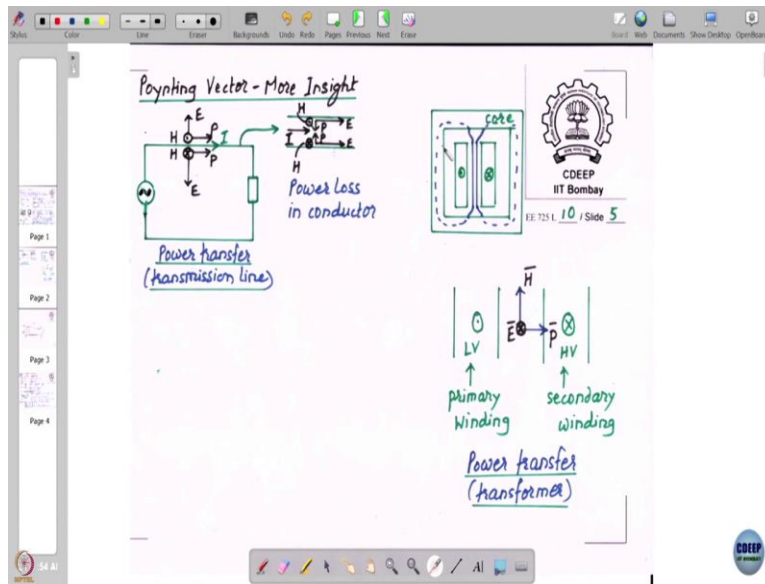 Stylus
Color
Line
Eraser
Backgrounds
Undo
Redo
Pages
Previous
Next
Erase
Board
Web
Documents
Show Desktop
OpenBoard
Page 1
Page 2
Page 3
Page 4
Poynting Vector - More Insight
E
H P I
H P
E
H
P E
I P E
H
Power Loss
in conductor
Power transfer
(transmission line)
core
CDEEP
IIT Bombay
EE 725 L 10 / Slide 5
H
E P
LV HV
primary secondary
Winding winding
Power transfer
(transformer)
NPTEL
CDEEP
IIT BOMBAY